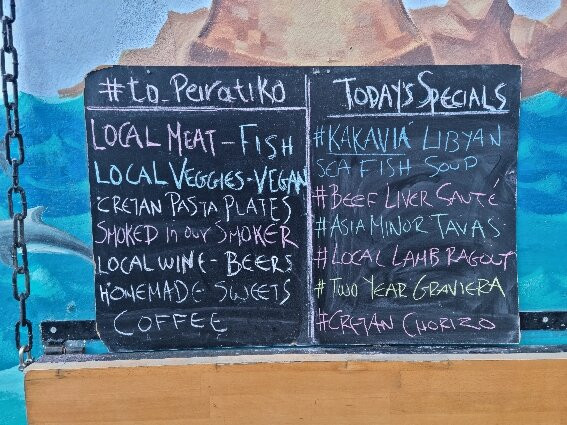 #to_Peiratiko
LOCAL MEAT - FISH
LOCAL VEGGIES - VEGAN
CRETAN PASTA PLATES
SMOKED in our SMOKER
LOCAL WINE - BEERS
HOMEMADE SWEETS
COFFEE
TODAY'S SPECIALS
#KAKAVIÁ LIBYAN
SEA FISH SOUP
#BEEF LIVER SAUTÉ
#ASIA MINOR TAVAS
#LOCAL LAMB RAGOUT
#TWO YEAR GRAVIERA
#CRETAN CHORIZO